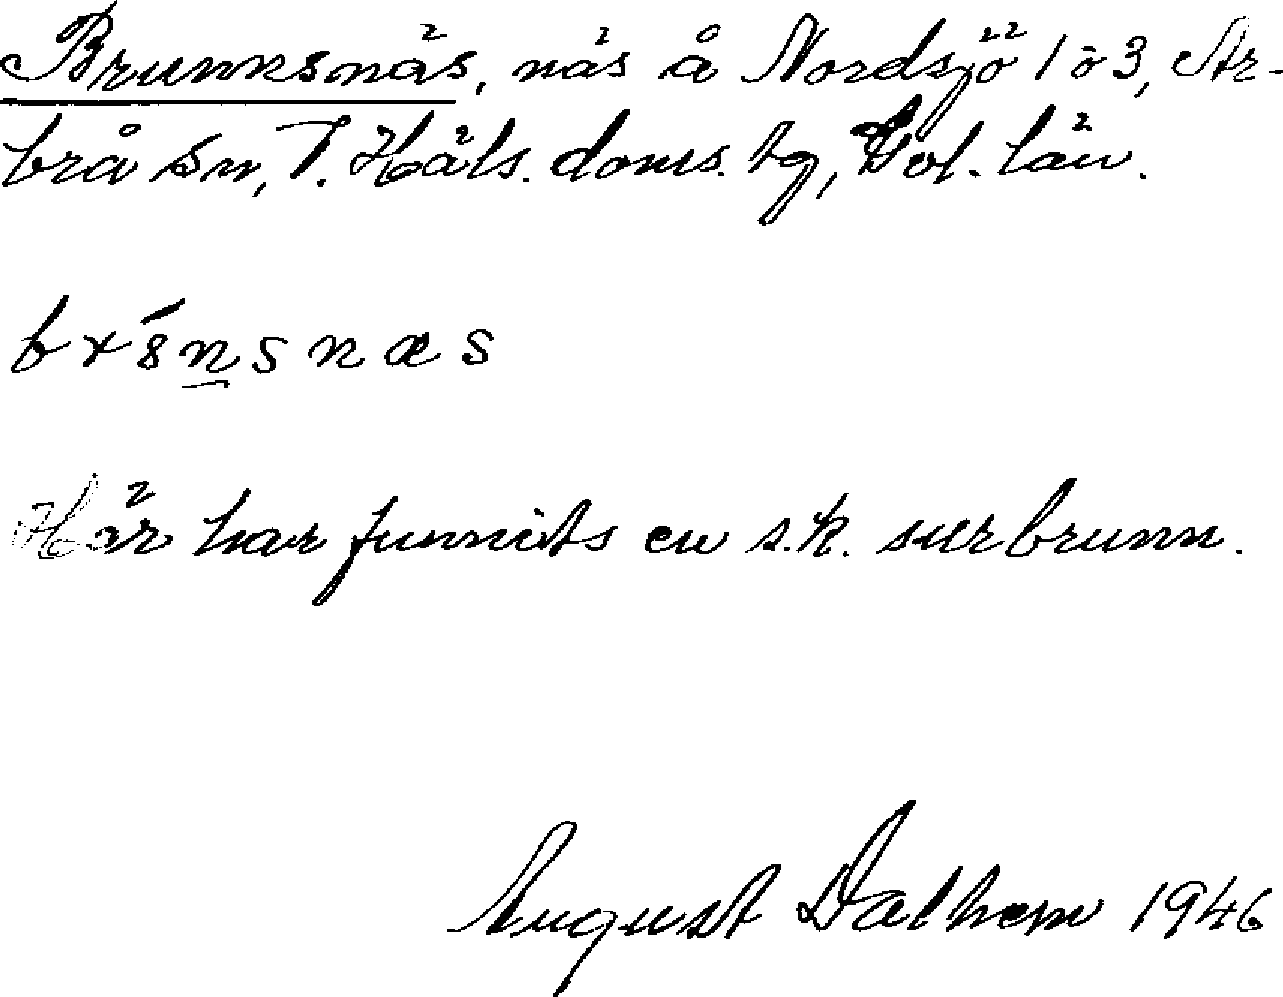 Brunnsnäs, näs å Nordsjö 1 o 3, Ar-
brå sn, V. Häls. doms. tg, Gvl. län.
Här har funnits en s.k. surbrunn.
August Dalhem 1946